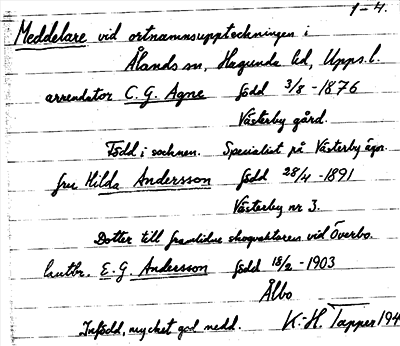 1-4.
Meddelare vid ortnamnsuppteckningen i
Ålands sn, Hagunda hd, Upps.l.
arrendator C. G. Agne född 3/8 -1876
Västerby gård.
Född i socknen. Specialist på Västerby ägor.
fru Hilda Andersson född 28/4 -1891
Västerby nr 3.
Dotter till framlidne skogvaktaren vid Överbo.
lantbr. E. G. Andersson född 18/2 -1903
Ålbo
Infödd, mycket god medd. K.-H. Tapper 194